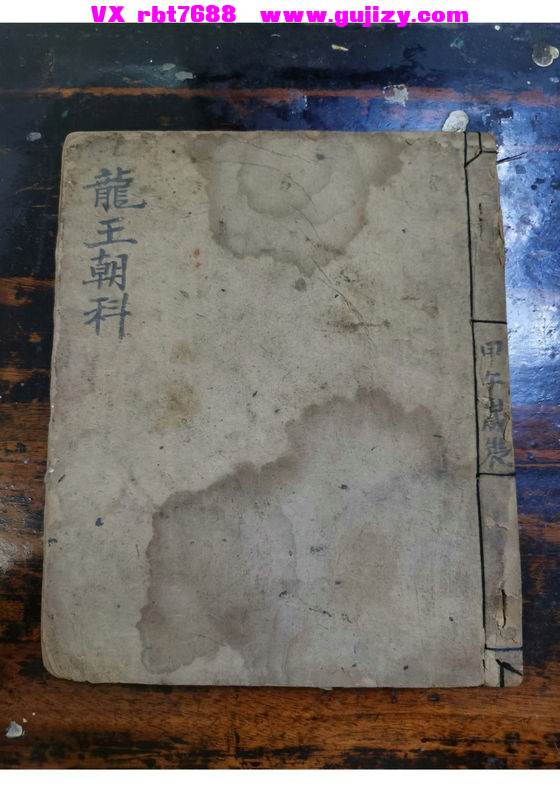 VX rbt7688 www.gujizy.com
龍王朝科
甲午歲裝